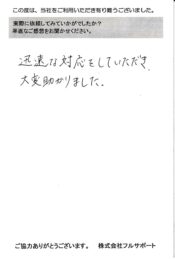 この度は、当社をご利用いただき有り難うございました。
実際に依頼してみていかがでしたか？
率直なご感想をお聞かせください。
迅速な対応をしていただき、
大変助かりました。
ご協力ありがとうございます。 株式会社フルサポート